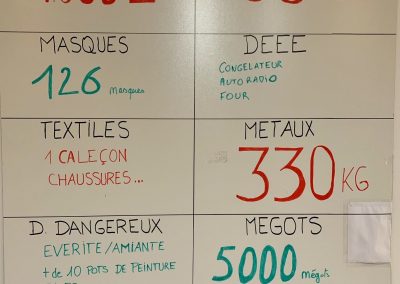 MASQUES
126 masques
DEEE
CONGELATEUR
AUTORADIO
FOUR
TEXTILES
1 CALEÇON
CHAUSSURES...
METAUX
330 KG
D. DANGEREUX
EVERITE/AMIANTE
+ de 10 POTS DE PEINTURE
MEGOTS
5000 mégots